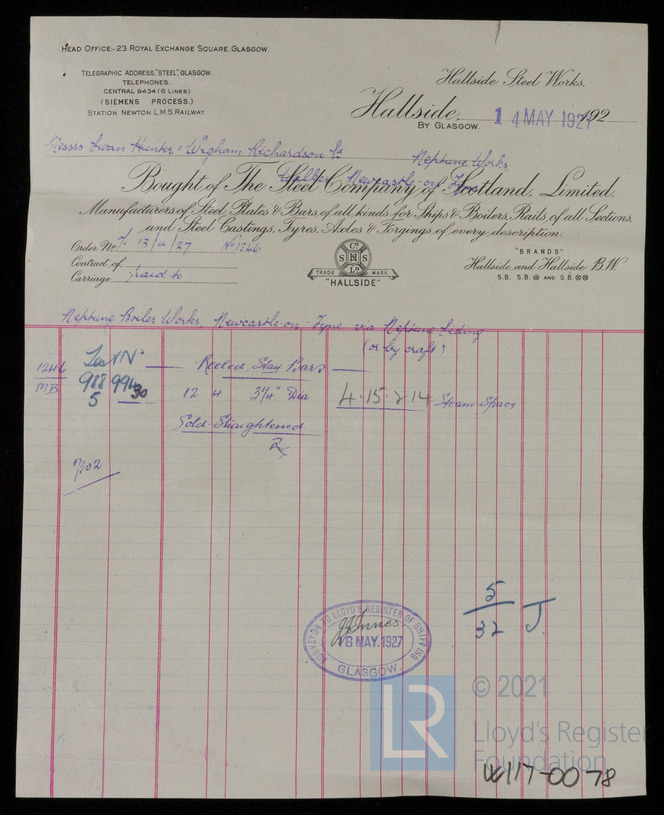 HEAD OFFICE:- 23 ROYAL EXCHANGE SQUARE, GLASGOW.
TELEGRAPHIC ADDRESS, "STEEL", GLASGOW.
TELEPHONES.
CENTRAL 9434 (6 LINES)
(SIEMENS PROCESS.)
STATION NEWTON L.M.S. RAILWAY.
Hallside Steel Works.
Hallside,
BY GLASGOW.
14 MAY 1927 192
Messrs Swan Hunter & Wigham Richardson Ld
Neptune Works
Walker, Newcastle on Tyne
Bought of The Steel Company of Scotland, Limited,
Manufacturers of Steel, Plates & Bars of all kinds for Ships & Boilers, Rails of all Sections,
and Steel Castings, Tyres, Axles & Forgings, of every description.
Order No. 13/4/27 No 1266
Contract of
Carriage paid to
Co
S H S
Ld
TRADE MARK
"HALLSIDE"
"BRANDS"
Hallside and Hallside B.W.
S.B. S.B. AND S.B.
Neptune Boiler Works, Newcastle on Tyne via Neptune Siding
(or by craft)
1266
M.B.
988 994
5 30
Reeled Stay Bars
12 3 1/4" Dia 4.15.2.14 Steam Space
Cold Straightened
7302
5
32 J
SURVEYOR TO LLOYD'S REGISTER OF SHIPPING
J Innes
18 MAY. 1927
GLASGOW.
LR
© 2021
Lloyd's Register
Foundation
W117-0078